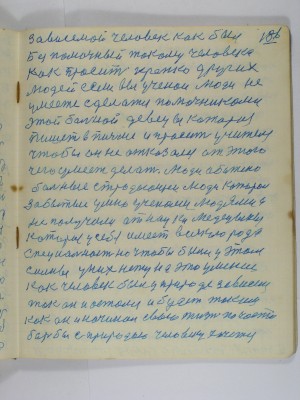 зависемой человек как был
Беспомочный такому человека
как просит крепко других
людей если вы ученои люди не
умеете сделати помочниками
этой больной девецы которая
пишет в пичяе и просит учителя
чтобы он не отказался от этого
чего умеет делат. Люди обижено
больные страдающии люди которои
забытые умно учеными людями и
не получаю от наукы медецыны
которои у себя имеет всякого рода
специальностно чтобы были у этом
силы у них нету на это умение
как человек был у природе зависим
так он и остался и будет таким
как он и начинал свою жизнь по части
барбы с природою человику хочется